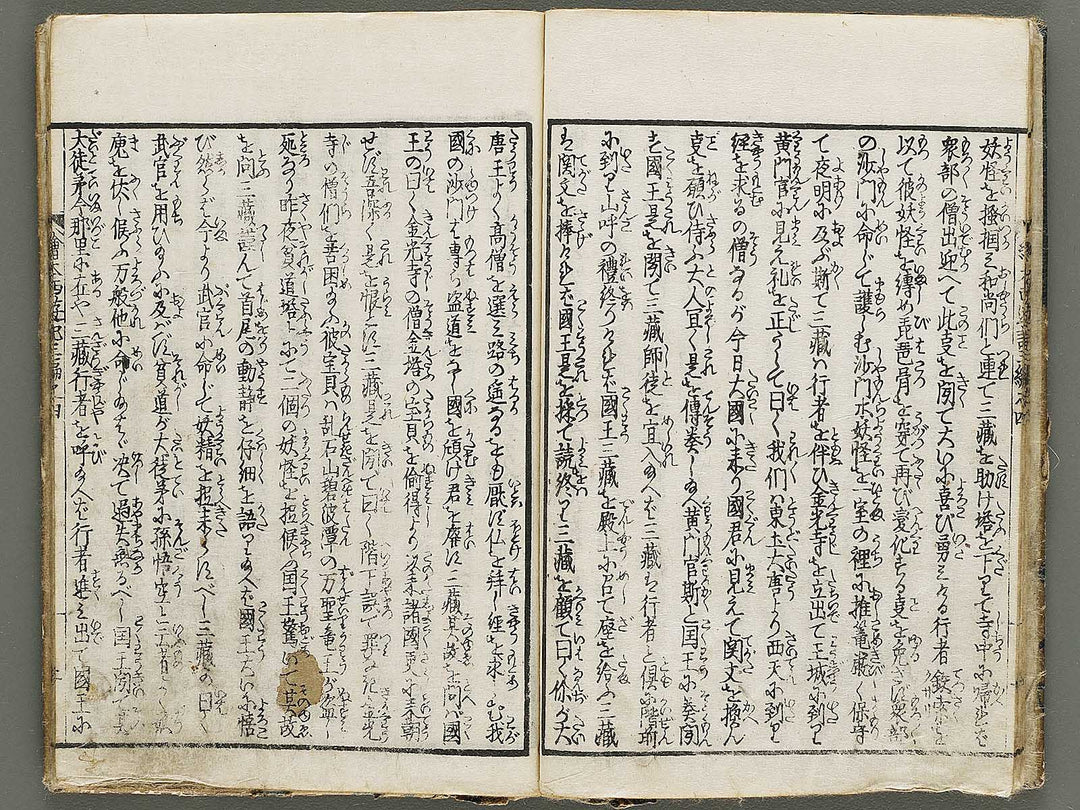 妖怪を搦捆え和尚們と連て三藏を助け塔を下りて寺中に帰れば
衆部の僧出迎へて此㕝を聞て大いに喜び勇ミける行者
以て彼妖怪を縛め琵琶骨を穿て再び変化する㕝を免さず衆部
の沙門に命じて護しむ沙門妖怪を一室の裡に推篭厳く保守
て夜明に及ぶ斯て三藏ハ行者を伴ひ金光寺を立出て王城に到り
黄門官に見え礼を正うして曰く我們ハ東土大唐より西天に到り
経を求るの僧なるが今日大國に来り國君に見えて関文を換ん
㕝を願ひ侍ふ大人宜く是を傳奏し給へ黄門官斯と国王に奏聞
す國王是を聞て三藏師徒を宣入給へば三藏も行者と倶に階前
に到り山呼の禮終りければ国王三藏を殿上に召て座を給ふ三藏
も関文を捧げければ國王是を採て読終り三藏を顧て曰く你が大
唐王よく高僧を選ミ路の遥なるをも厭ず仏を拜し経を求しむ我
國の沙門は専ら盗道をなし國を傾け君を廃ず三藏其故を問ハ國
王の曰く金光寺の僧金塔の宝貝を偷得より以来諸國更に来朝
せず吾深く是を恨ミ三藏是を聞て曰く階下誤て罪なき金光
寺の僧們を苦困給ふ彼宝貝ハ乱石山碧波潭の万聖竜王が
死なり昨夜貧道塔上にて二個の妖怪を捉候ふ国王驚いて其故
を問三藏謹んで首尾の動静を仔細を語り給へば國王大に悟
び然らば今より武官に命じて妖精を捉来らすべし三藏の曰く
武官を用ひ給ふに及バず貧道が大徒弟に孫悟空と
魔を伏し候ふ万般他に命じ給はゞ決て過失有るべからず国王聞て其
大徒弟今那里に在や三藏行者を呼給へば行者進ミ出て國王に